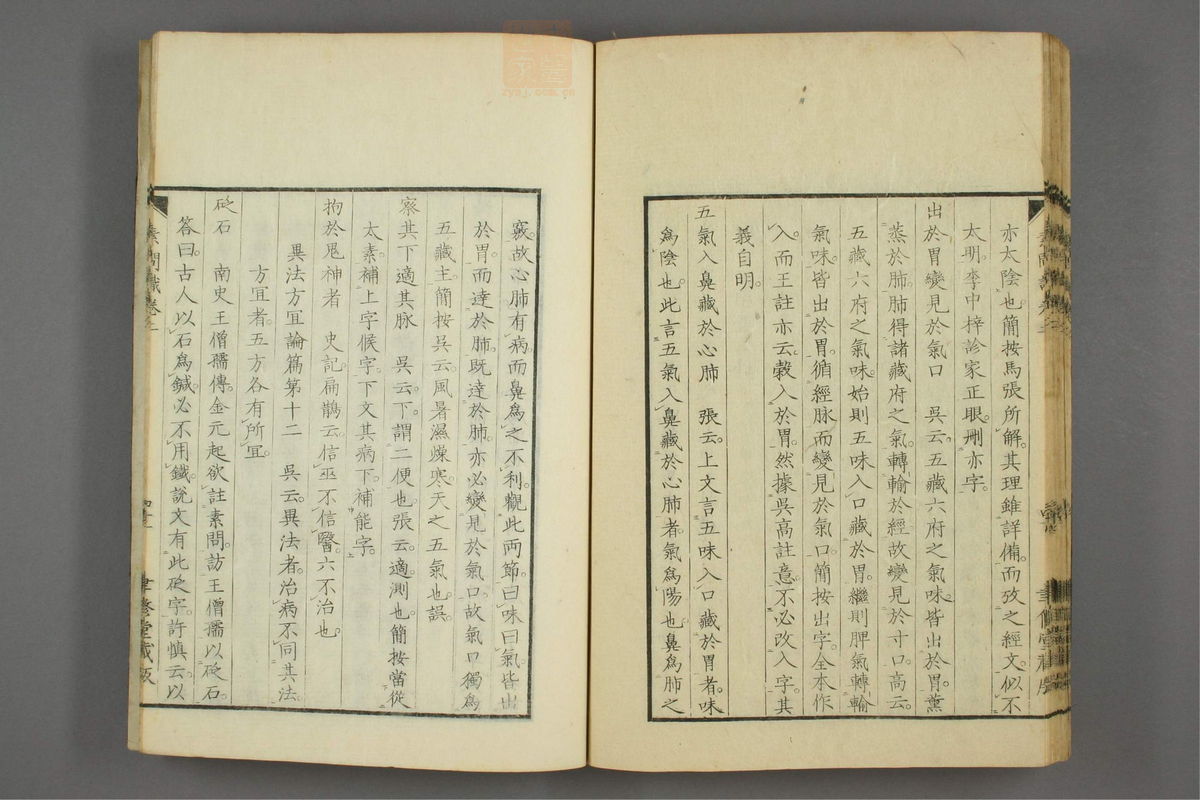 亦太陰也。簡按馬張所解。其理雖詳備。而攷之經文。似不
太明。李中梓診家正眼。刪亦字。
出於胃變見於氣口　吳云。五藏六府之氣味皆出於胃薰
蒸於肺。肺得諸藏府之氣。轉輸於經。故變見於寸口。高云。
五藏六府之氣味。始則五味入口藏於胃。繼則脾氣轉輸
氣味。皆出於胃。循經脉而變見於氣口。簡按出字。全本作
入。而王註亦云。穀入於胃。然據吳高註意。不必改入字。其
義自明。
五氣入鼻藏於心肺　張云。上文言五味入口藏於胃者。味
爲陰也。此言五氣入鼻藏於心肺者。氣爲陽也。鼻爲肺之
竅。故心肺有病。而鼻爲之不利。觀此两節。曰味曰氣。皆出
於胃。而達於肺。既達於肺。亦必變見於氣口。故氣口獨爲
五藏主。簡按吳云。風暑濕燥寒天之五氣也。誤。
察其下適其脉　吳云。下。謂二便也。張云。適。測也。簡按當從
太素。補上字候字。下文其病下。補能字。
拘於鬼神者　史記。扁鵲云。信巫不信醫。六不治也。
異法方宜論篇第十二　吳云。異法者。治病不同其法。
方宜者。五方各有所宜。
砭石　南史王僧孺傳。金元起欲註素問。訪王僧孺以砭石。
答曰。古人以石爲鍼。必不用鐵。說文有此砭字。許慎云。以
素問識卷之二
聿修堂藏版